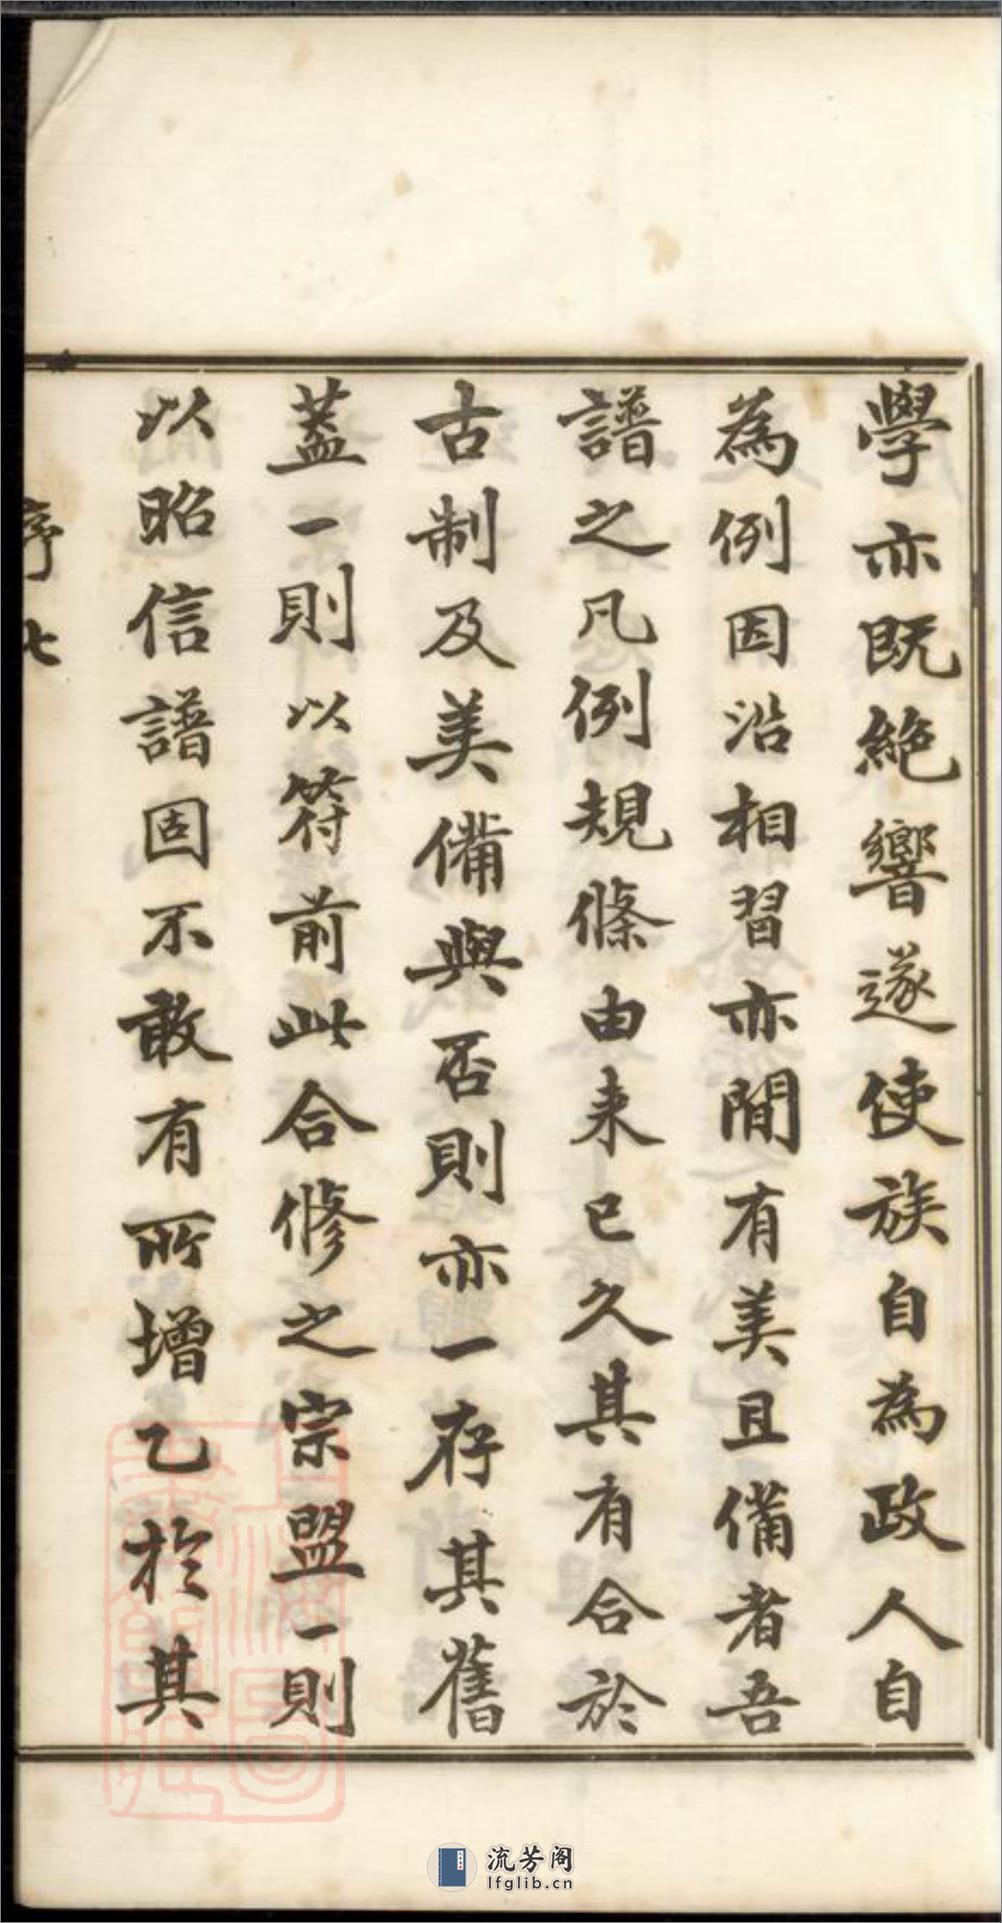 學亦既絶響遂使族自為政人自
為例因沿相習亦間有美且備者吾
譜之凡例規條由来已久其有合於
古制及美備與否則亦一存其舊
蓋一則以符前此合修之宗盟一則
以昭信譜固不敢有所增乙於其
序 七
流芳阁
lfglib.cn